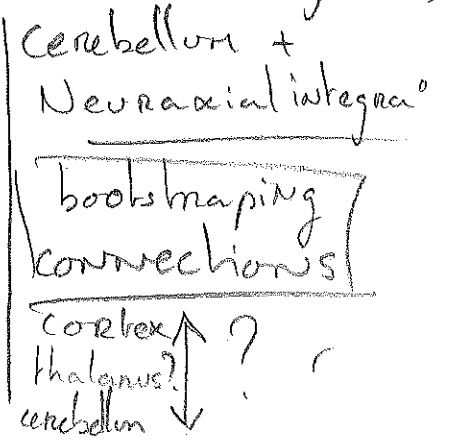 Cerebellum +
Neuraxial integra°
bootstraping
connections
cortex ?
thalamus?
cerebellum